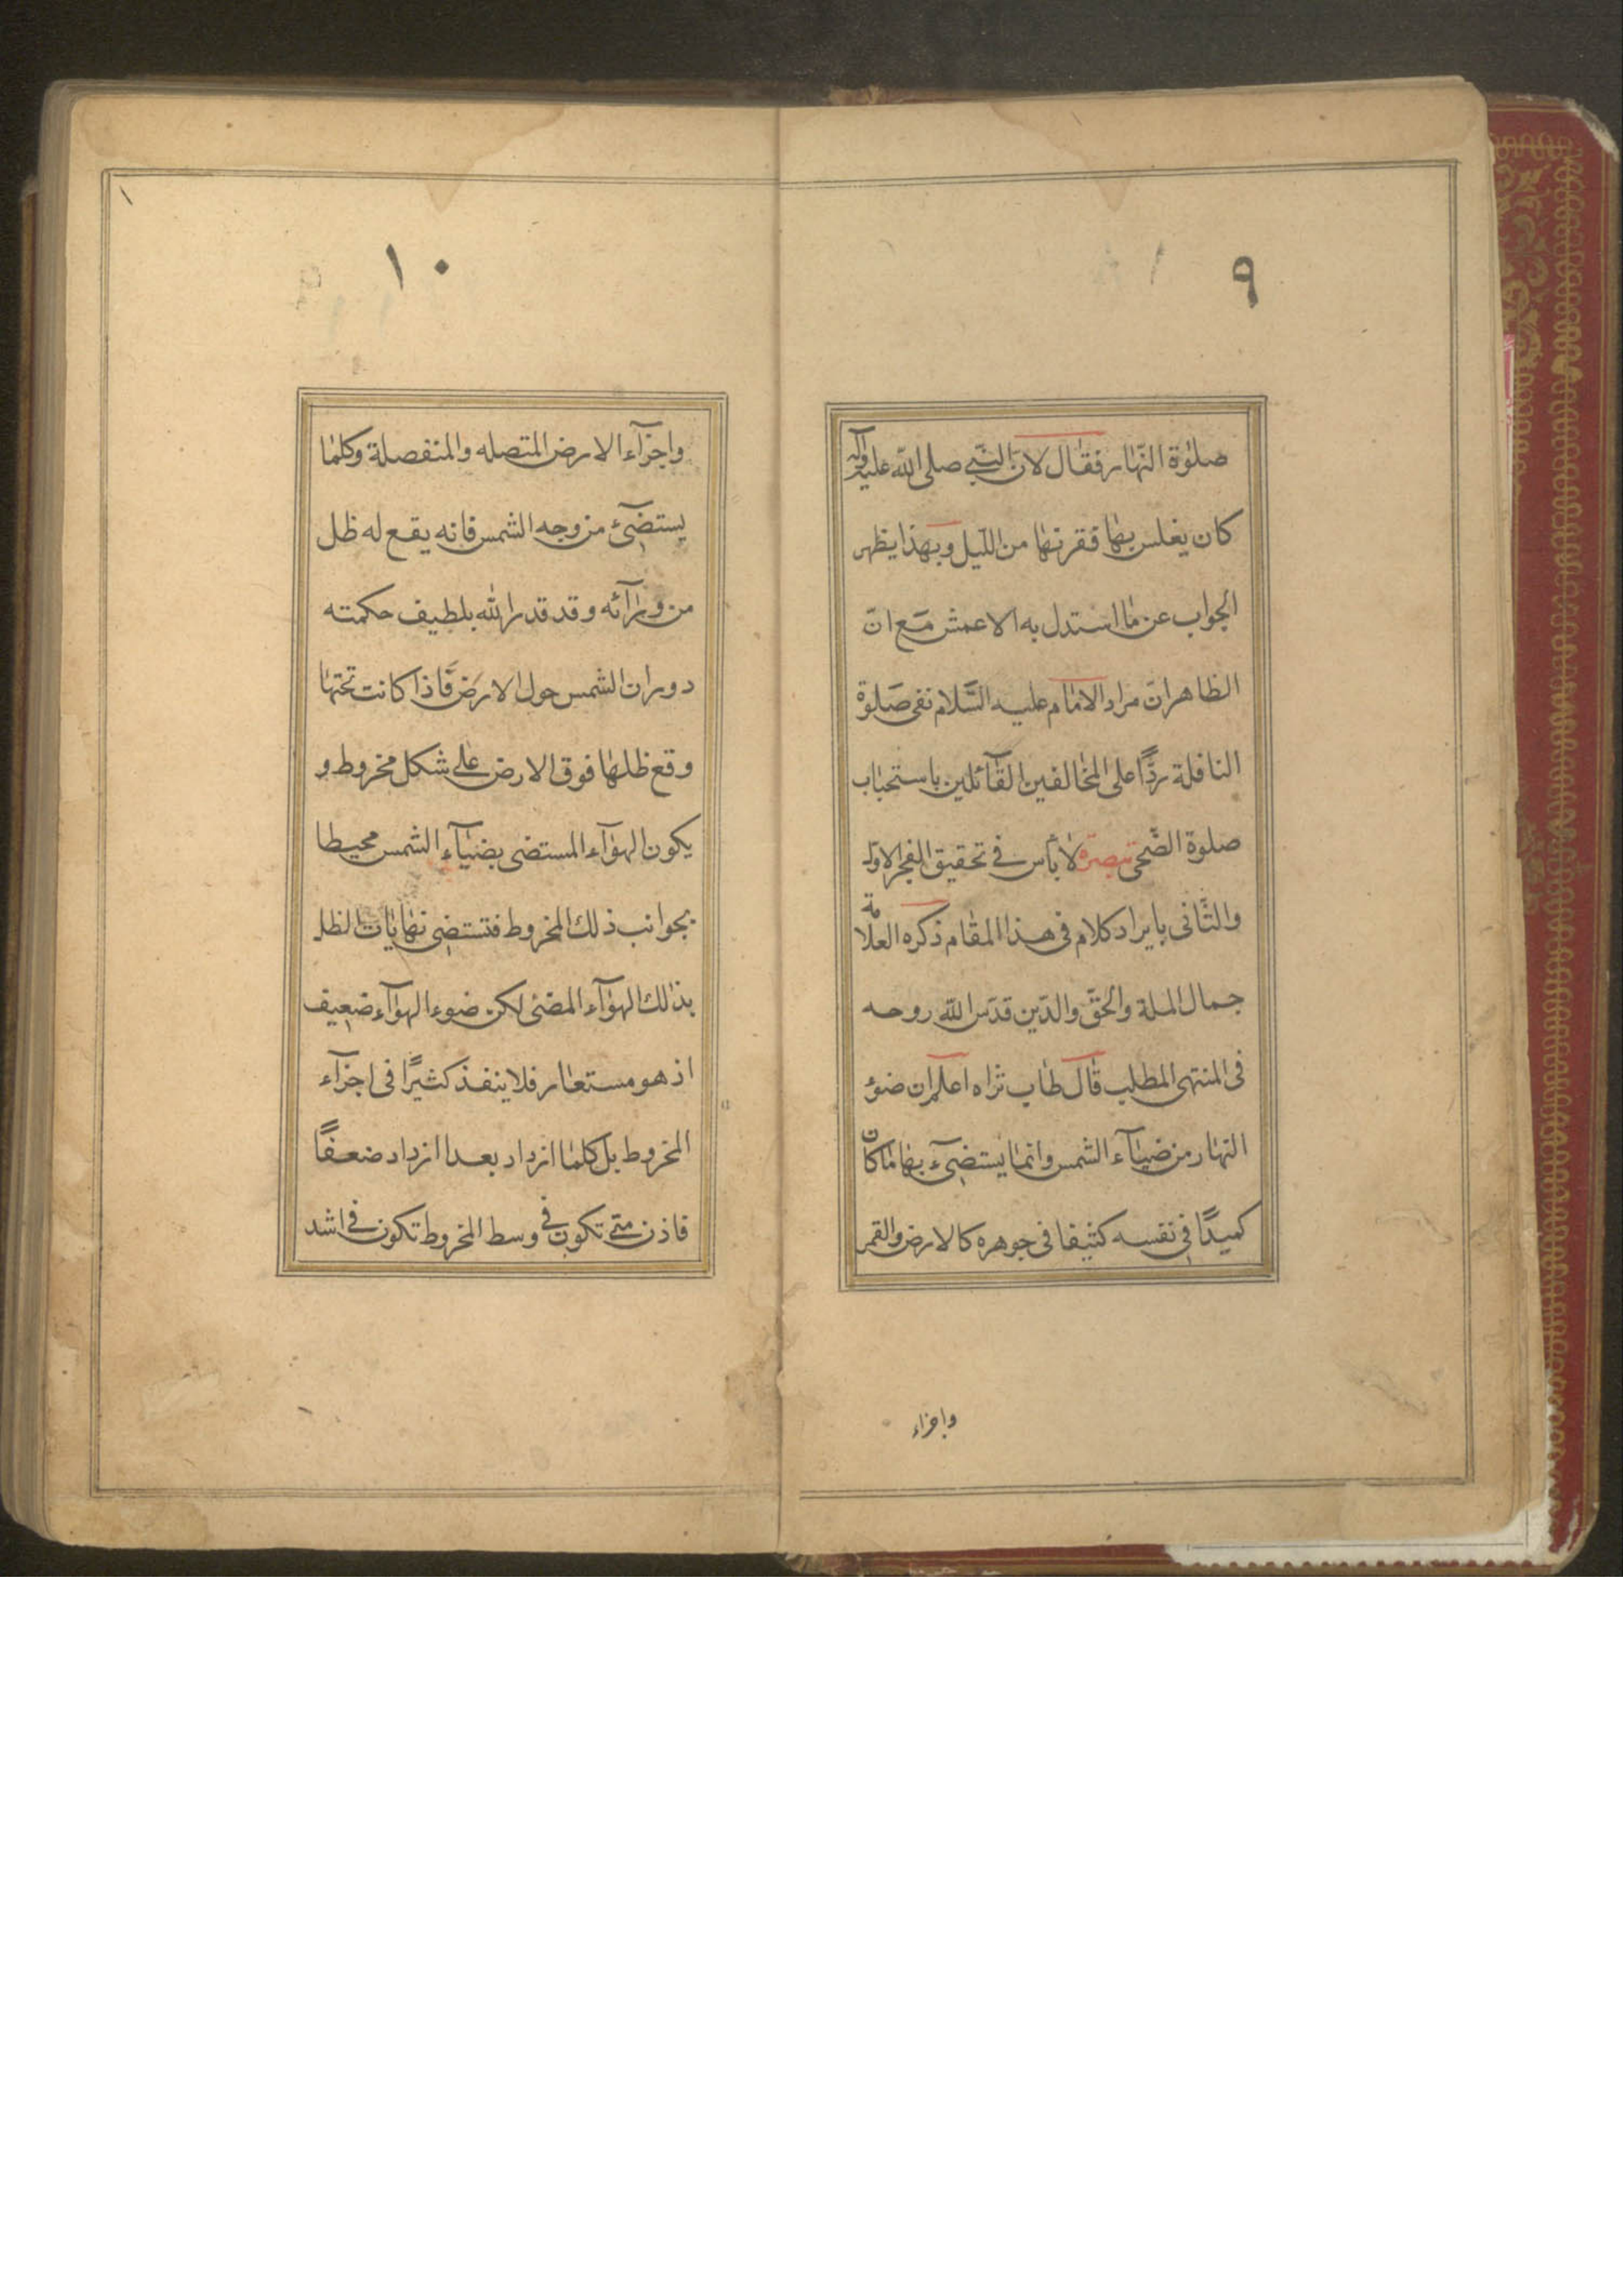 ٩
صلوة النّهار فقال لان النّبي صلى اللّه عليه وآله
كان يغلس بها فقرنها من اللّيل وبهذا يظهر
الجواب عن ما استدل به الاعمش مع انّ
الظاهر انّ مراد الامام عليه السّلام نفى صلوة
النافلة ردًّا على المخالفين القآئلين باستحباب
صلوة الضّحى تبصرة لا بأس فى تحقيق الفجر الاول
والثّانى بايراد كلام فى هذا المقام ذكره العلامة
جمال الملة والحقّ والدّين قدّس اللّه روحه
فى المنتهى المطلب قال طاب ثراه اعلم ان ضوء
النهار من ضيآء الشمس وانما يستضىء بها ما كان
كميدًا فى نفسه كثيفا فى جوهره كالارض والقمر
واجزاء
١٠
واجزآء الارض المتصله والمنفصلة وكلما
يستضىء من وجه الشمس فانه يقع له ظل
من ورآئه وقد قدر الله بلطيف حكمته
دوران الشمس حول الارض فاذا كانت تحتها
وقع ظلها فوق الارض على شكل مخروط و
يكون الهوآء المستضى بضيآء الشمس محيطا
بجوانب ذلك المخروط فتستضى نهايات الظل
بذلك الهوآء المضئ لكن ضوء الهوآء ضعيف
اذ هو مستعار فلا ينفذ كثيرًا فى اجزآء
المخروط بل كلما ازداد بعدا ازداد ضعفًا
فاذن متى تكون فى وسط المخروط تكون فى اشد